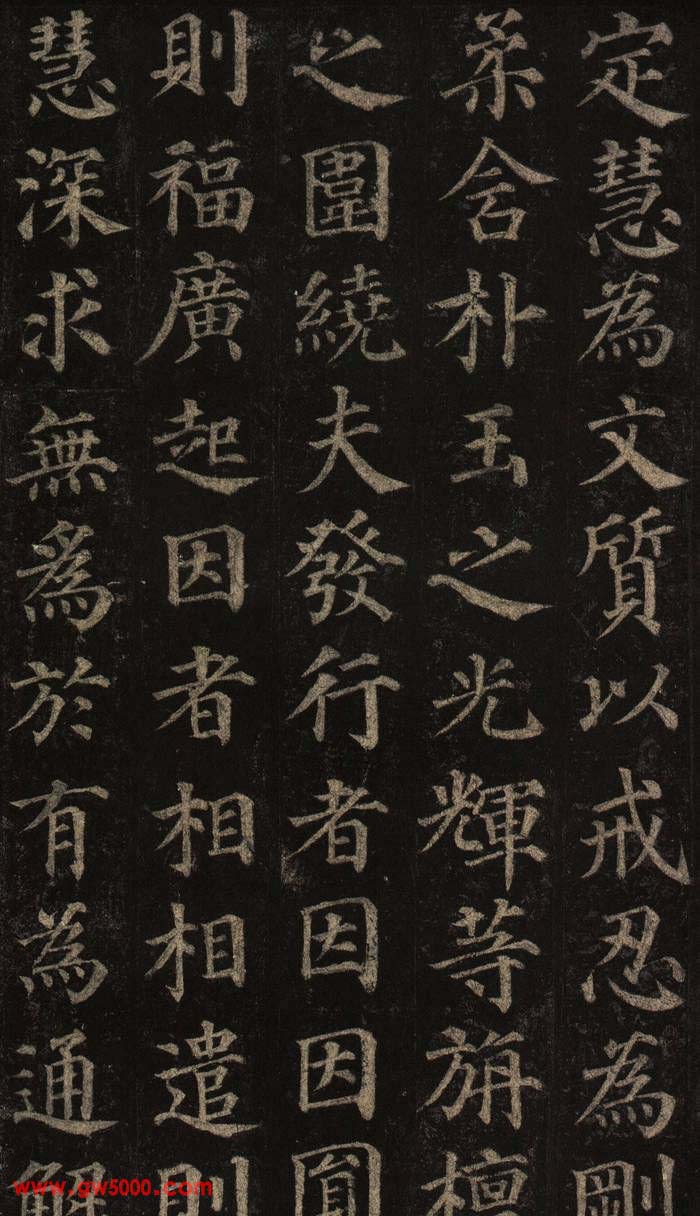 定慧為文質以戒忍為剛
柔含朴玉之光輝等旃檀
之圍繞夫發行者因因圓
則福廣起因者相相遣則
慧深求無為於有為通解
www.gw5000.com